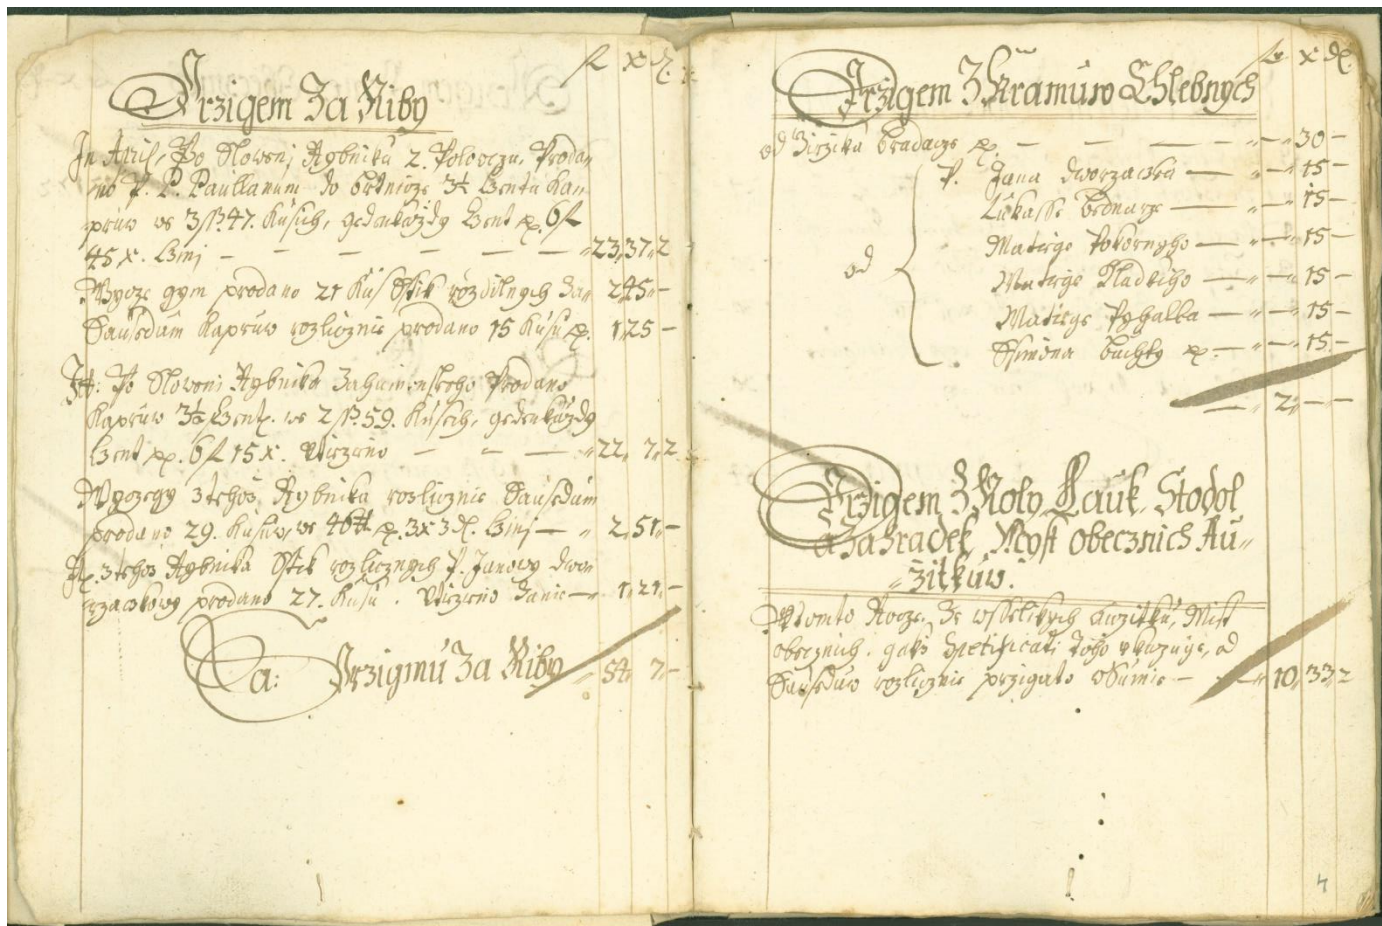 fl x dl.
Przigem Za Riby
In April, Po Sloweni Rybniku 2. Proda„
no P. P. Paullanum do 3½ Centu Ka„
pruw we 3 ß 47. Kusich, gedenkazdy Cent p. 6 fl
45 x. Czinj — — — — — „ 23„ 37„ 2
Wygoze gym prodano 21 Kus Sstik rozdilnych za„ 2„ 45„ —
Sausedum Kapruw rozlicznie prodano 15 Kusu p. 1„ 25 —
It: Po Sloweni Rybnika Zahumenskeho Prodano
Kapruw 3½ Cent. we 2 ß 59. Kusech, gedenkazdy
Cent pp. 6 fl 15 x. Utrzeno — — — „ 22„ 7„ 2
Wygozegy z tehoz Rybnika rozlicznie Sausedum
prodano 29. Kusuw, we 46 tt p. 3 x 3 dl. Czinj — „ 2„ 51„ —
It. z tehoz Rybnika Sstik rozlicznych P. Janowy Dwor
rzaczkowy prodano 27. Kusu. Utrzeno Zanie — „ 1„ 21„ —
Sa: Przigmu Za Riby „ 54„ 7„ —
fl x dl.
Przigem Z Kramuw Chlebnych
od Girzika Bradacze p. — — — — „ — „ 30 —
P. Jana Dworzaczka — „ — „ 15 —
Lukasse Bednarze — „ — „ 15 —
Matege Pokorneho — „ — „ 15 —
od Matege Sladkiho — „ — „ 15 —
Matege Pychalka — „ — „ 15 —
Ssimona Buchty p. — „ — „ 15 —
— „ 2„ — „ —
Przigem Z Roly Lauk, Stodol
a Zahradek, Myst obecznich Au„
„zitkuw.
Wtomto Rocze, Ze wsselikych auzitku, Mist
obecznich. gakz Specificati toho ukazuge, od
Sauseduw rozlicznie przigato w Sumie — „ 10„ 33„ 2
4